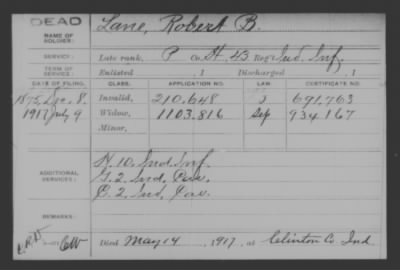 DEAD
NAME OF SOLDIER: Lane, Robert B.
SERVICE: Late rank, P Co. H, 43 Reg't Ind. Inf.
TERM OF SERVICE: Enlisted , 1 Discharged , 1
DATE OF FILING. CLASS. APPLICATION NO. LAW. CERTIFICATE NO.
1875, Dec. 8. Invalid, 210,648 J 691,763
1917 July 9 Widow, 1103,816 Sep 934,167
Minor,
ADDITIONAL SERVICES:
H. 10. Ind. Inf.
G. 2. Ind. Cav.
C. 2. Ind. Cav.
REMARKS:
CW
Died May 14, 1917, at Clinton Co. Ind